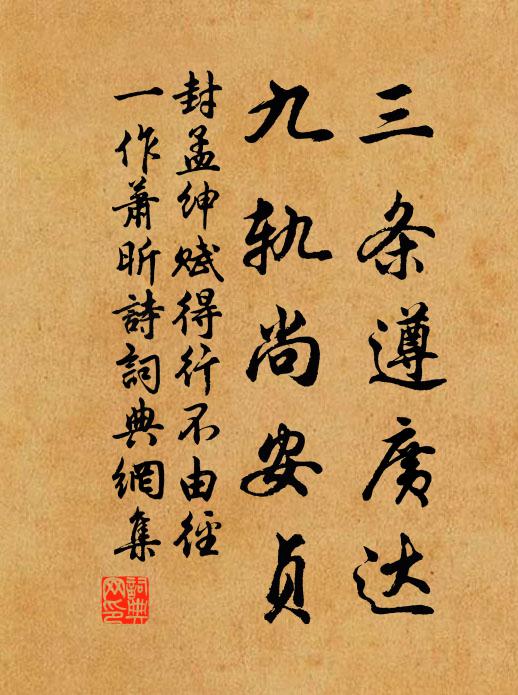 三条遵廣达
九轨尚安贞
封孟绅赋得行不由徑
一作蕭昕詩詞典網集
詞典網印